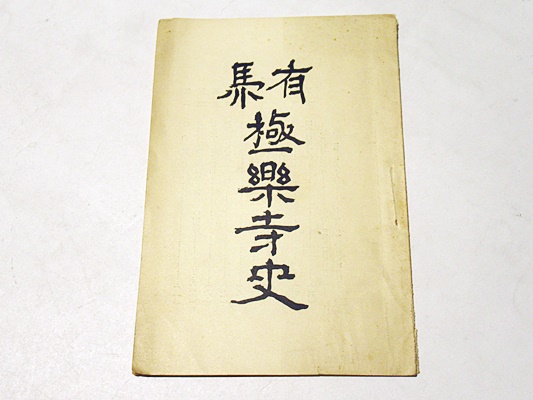 有馬
極樂寺史